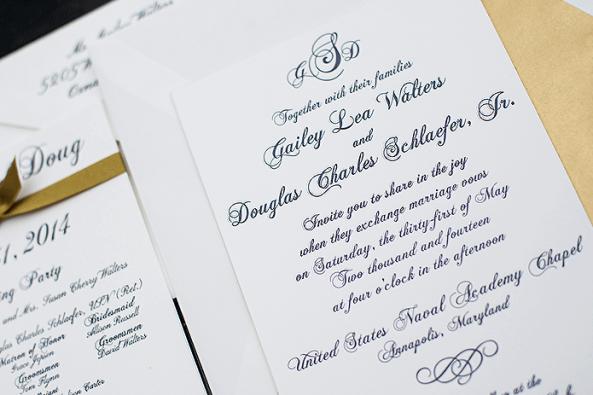 G S D
Together with their families
Gailey Lea Walters
and
Douglas Charles Schlaefer, Jr.
Invite you to share in the joy
when they exchange marriage vows
on Saturday, the thirty-first of May
Two thousand and fourteen
at four o'clock in the afternoon
United States Naval Academy Chapel
Annapolis, Maryland
at the
Doug
1, 2014
ing Party
and Mrs. Susan Cherry Walters
Charles Schlaefer, USN (Ret.)
Matron of Honor
Bridesmaid
Alison Russell
Groomsmen
Groomsmen
David Walters
Tom Flynn
Carter
5205